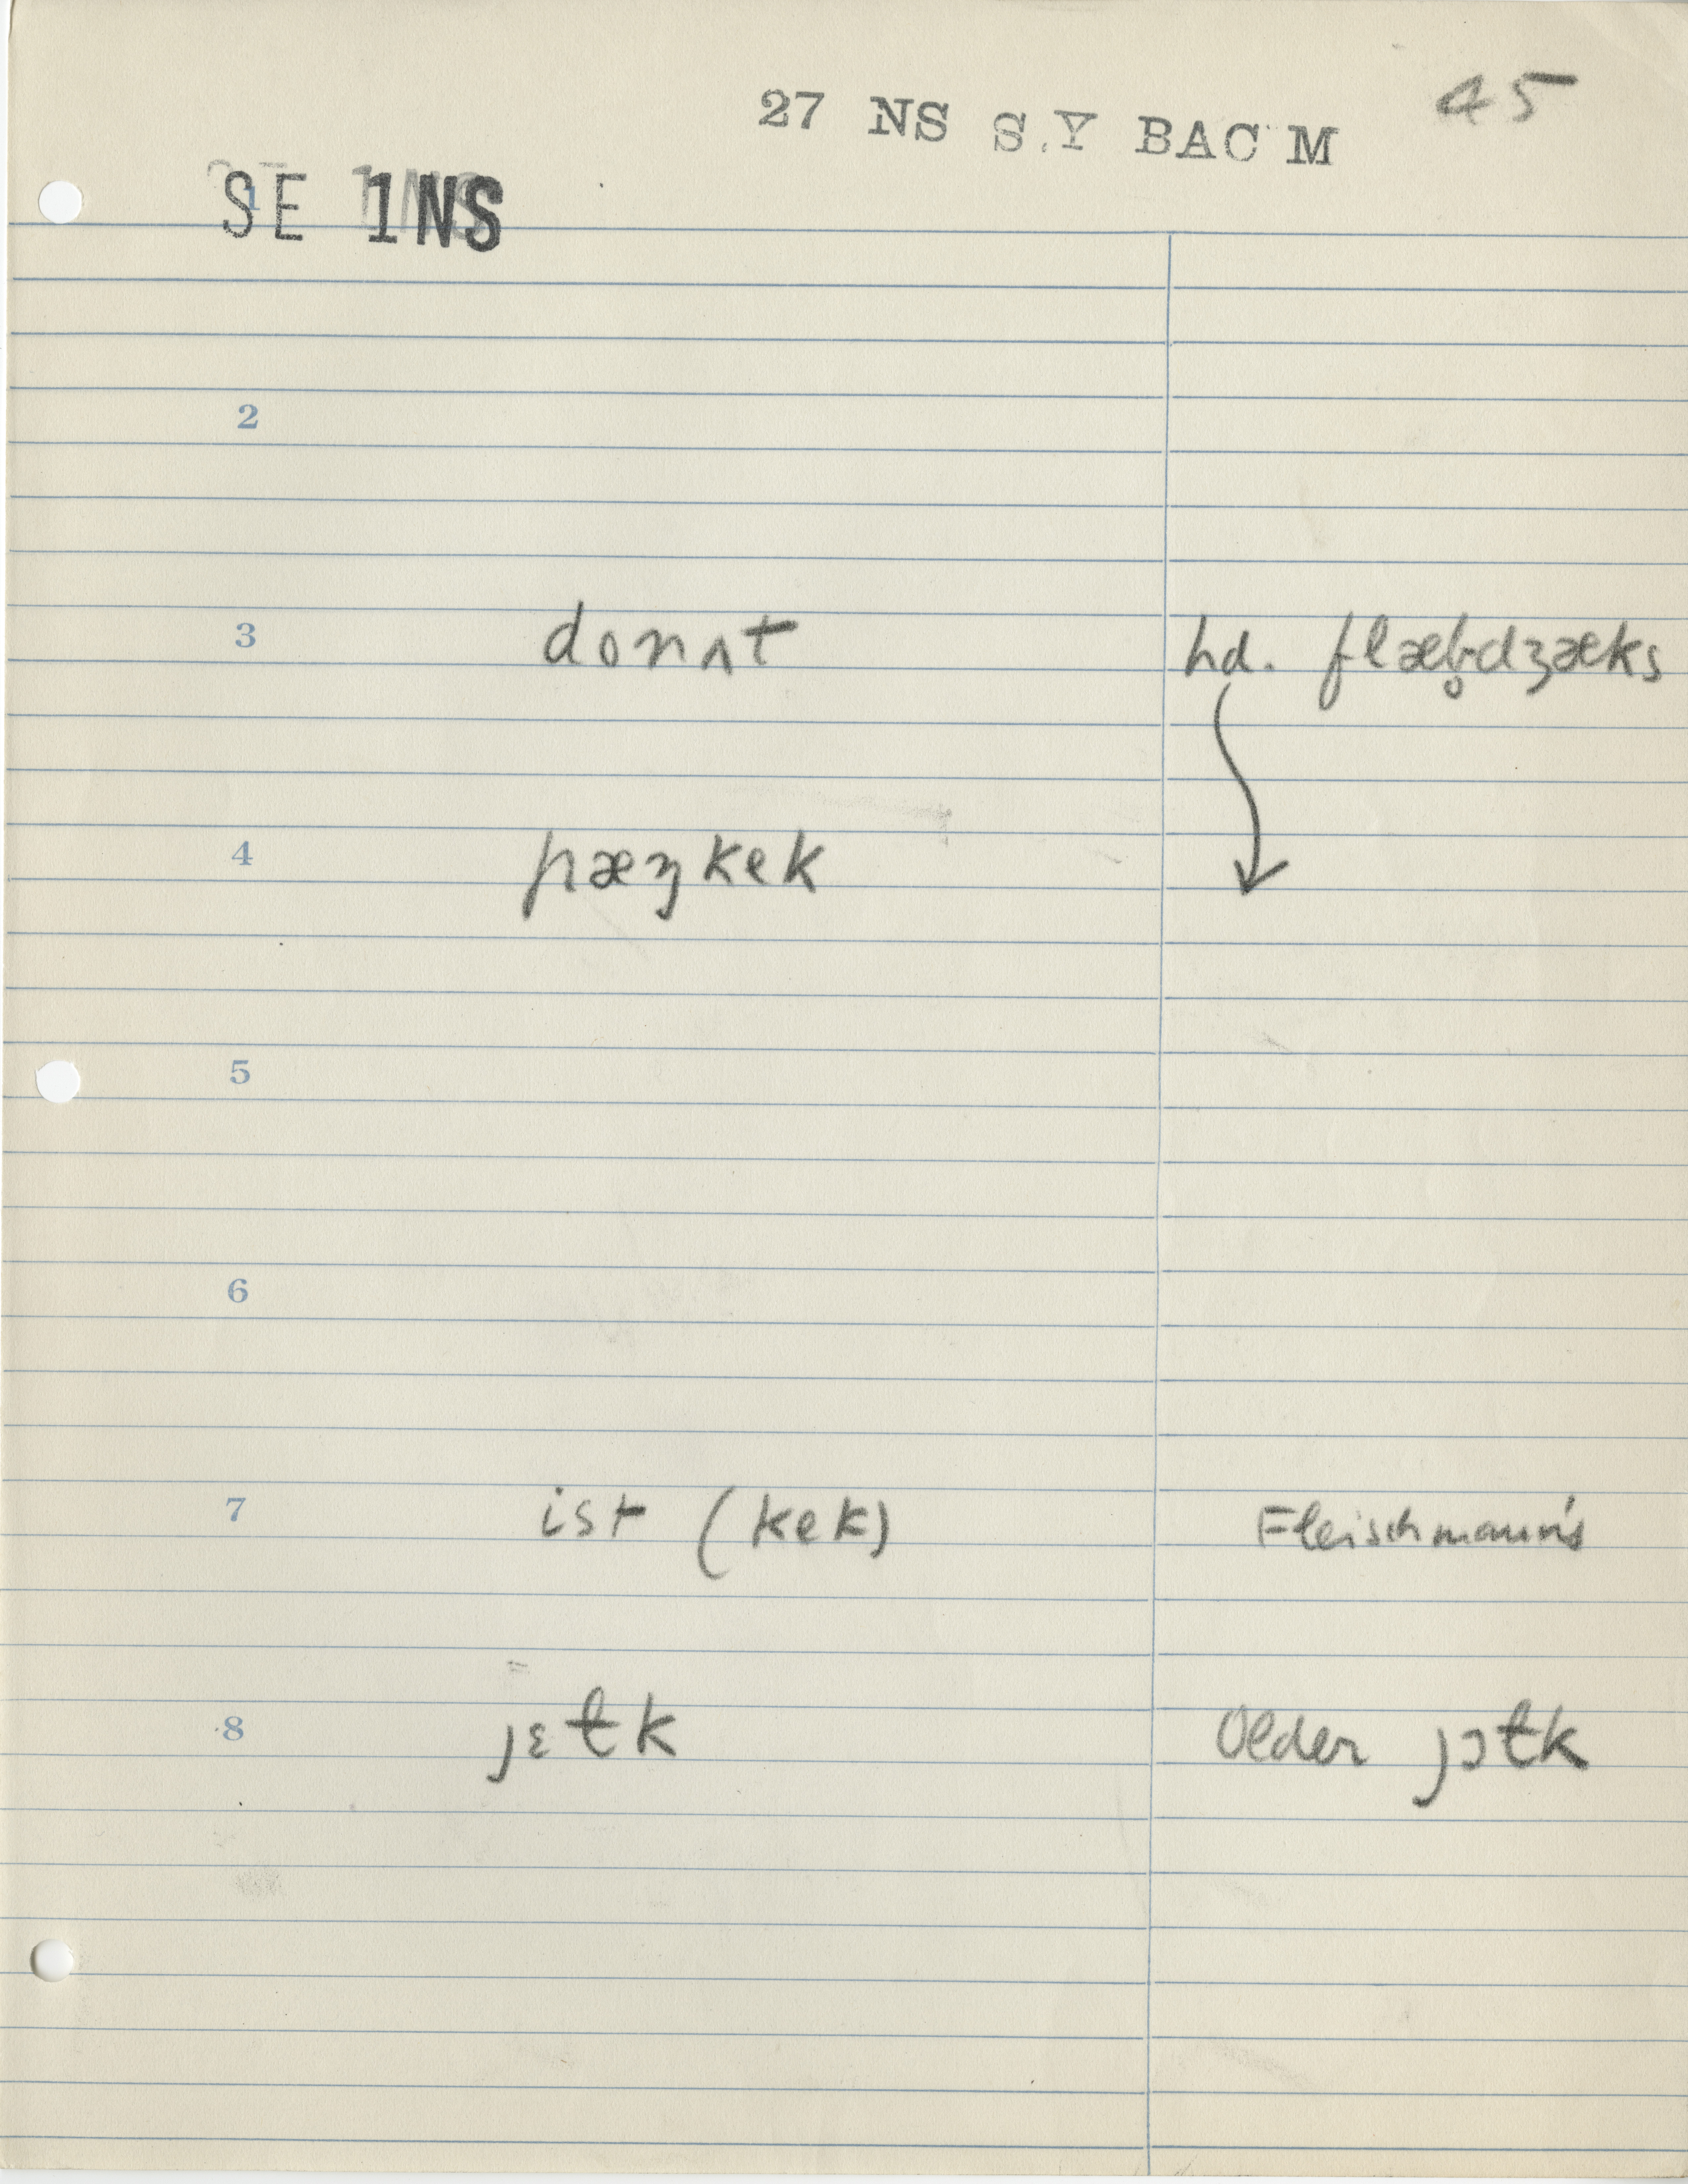 27 NS S.Y BAC M 45
SE 1NS
1
2
3 donʌt hd. flæb̥dʒæks
4 pæŋkek
5
6
7 ist (kek) Fleischmann's
8 jɛɫk Older jɔɫk